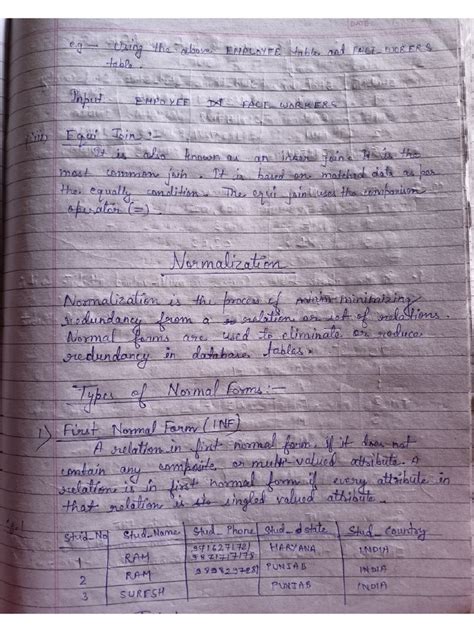 DATE:
e.g - Using the above EMPLOYEE table and FACT WORKERS
table
Input EMPOYEE ⟗ FACE WORKERS
Equi Join :-
It is also known as an inner join. It is the
most common join. It is based on matched data as per
the equally condition. The equi join uses the comparison
operator (=).
Normalization
Normalization is the process of minimizing
redundancy from a relation or set of relations.
Normal forms are used to eliminate or reduce
redundancy in database tables.
Types of Normal Forms:-
1) First Normal Form (1NF)
A relation in first normal form, if it does not
contain any composite or multi-valued attribute. A
relation is in first normal form if every attribute in
that relation is singled valued attribute.
Stud_No Stud_Name Stud_Phone Stud_State Stud_Country
1 RAM HARYANA INDIA
2 RAM PUNJAB INDIA
3 SURESH PUNJAB INDIA